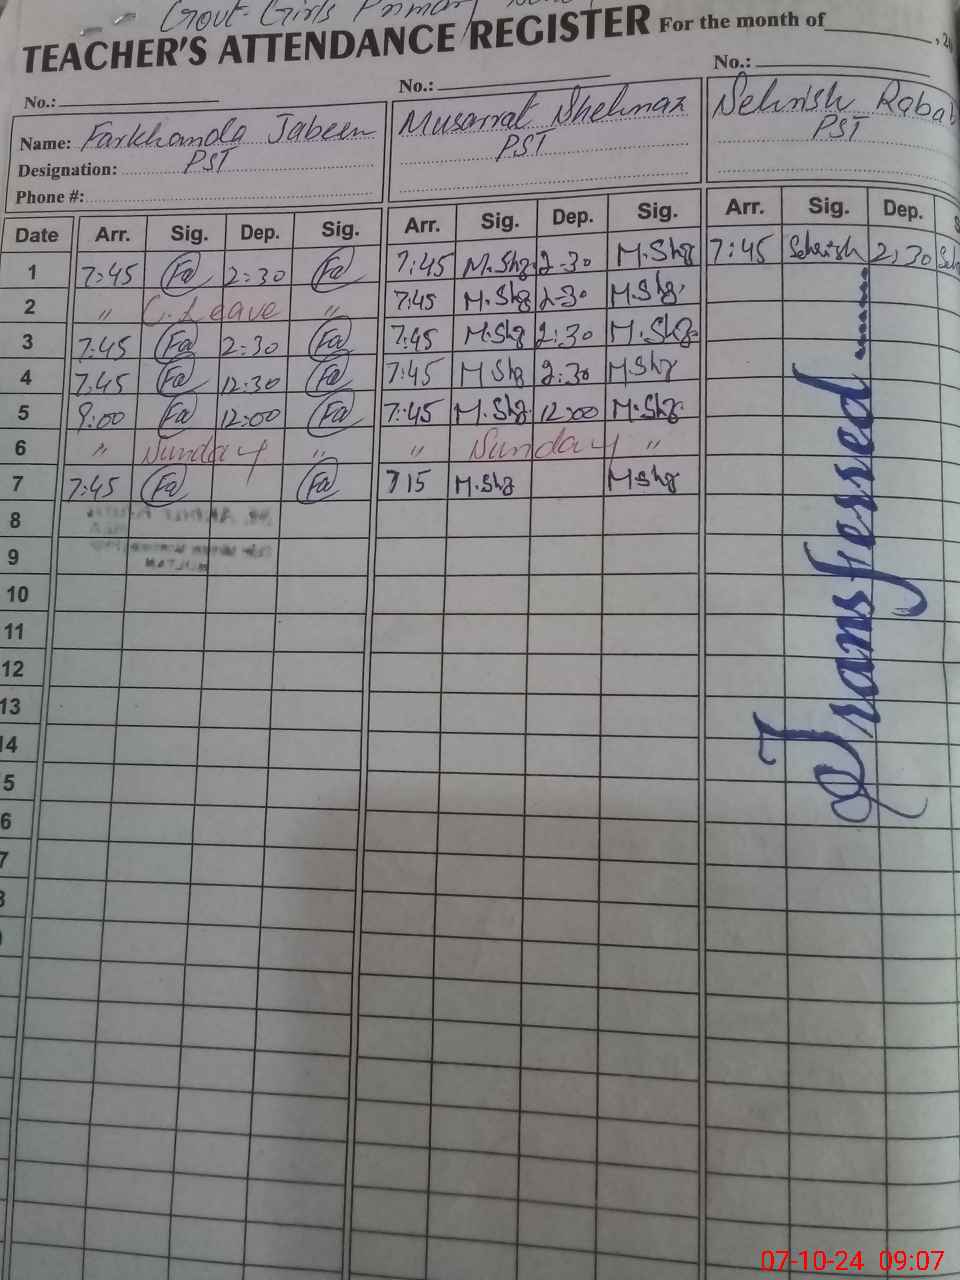 Govt. Girls Primary
TEACHER'S ATTENDANCE REGISTER For the month of
No.: No.: No.:
Name: Farkhanda Jabeen Musarrat Shehnaz Sehrish Rabab
Designation: PST PST PST
Phone #:
Date Arr. Sig. Dep. Sig. Arr. Sig. Dep. Sig. Arr. Sig. Dep.
1 7:45 Fa 2:30 Fa 7:45 M.Shz 2:30 M.Shz 7:45 Sehrish 2:30
2 " C.Leave " 7:45 M.Shz 2:30 M.Shz
3 7:45 Fa 2:30 Fa 7:45 M.Shz 2:30 M.Shz
4 7:45 Fa 12:30 Fa 7:45 M Shz 2:30 M.Shz
5 8:00 Fa 12:00 Fa 7:45 M.Shz 12:00 M.Shz
6 " Sunday " " Sunday "
7 7:45 Fa Fa 7 15 M.Shz M Shz
8
9
10
11
12
13
14
5
6
7
Transferred
07-10-24 09:07